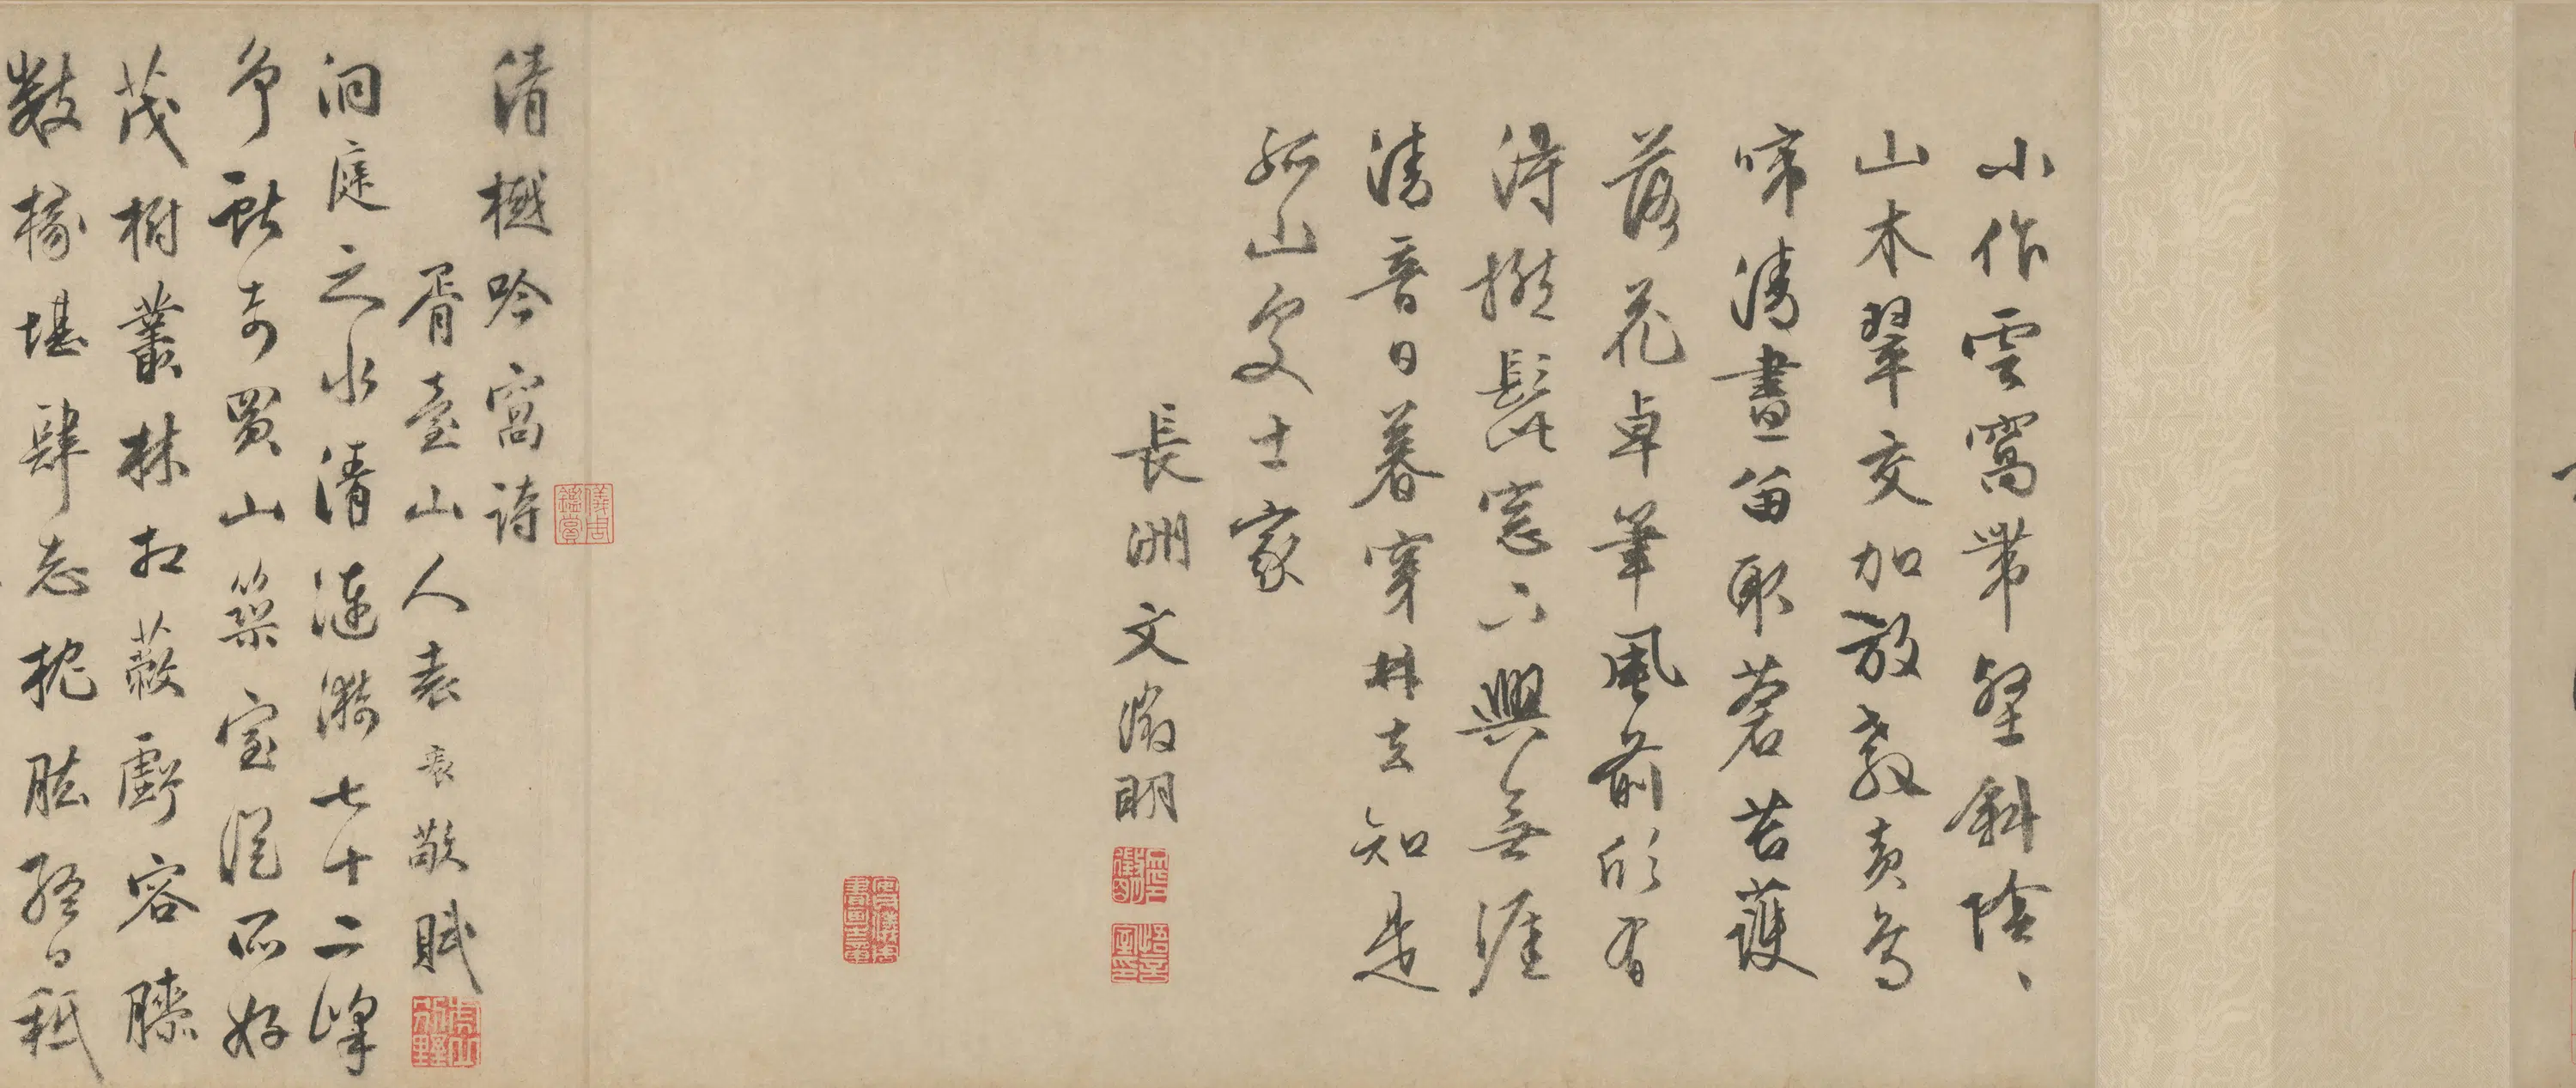 小作雲窩帶壑斜陰、
山木翠交加放教黃鳥
啼清晝留取蒼苔護
落花卓筆風前欣有
得撚髭窓下興無涯
清音日暮穿林去知是
孤山處士家
長洲文徵明
清樾吟窩詩
胥臺山人袁袠敬賦
洞庭之水清漣漪七十二峰
爭獻奇買山築室從所好
茂樹叢林相蔽虧容膝
數椽堪肆志枕肱終日秪